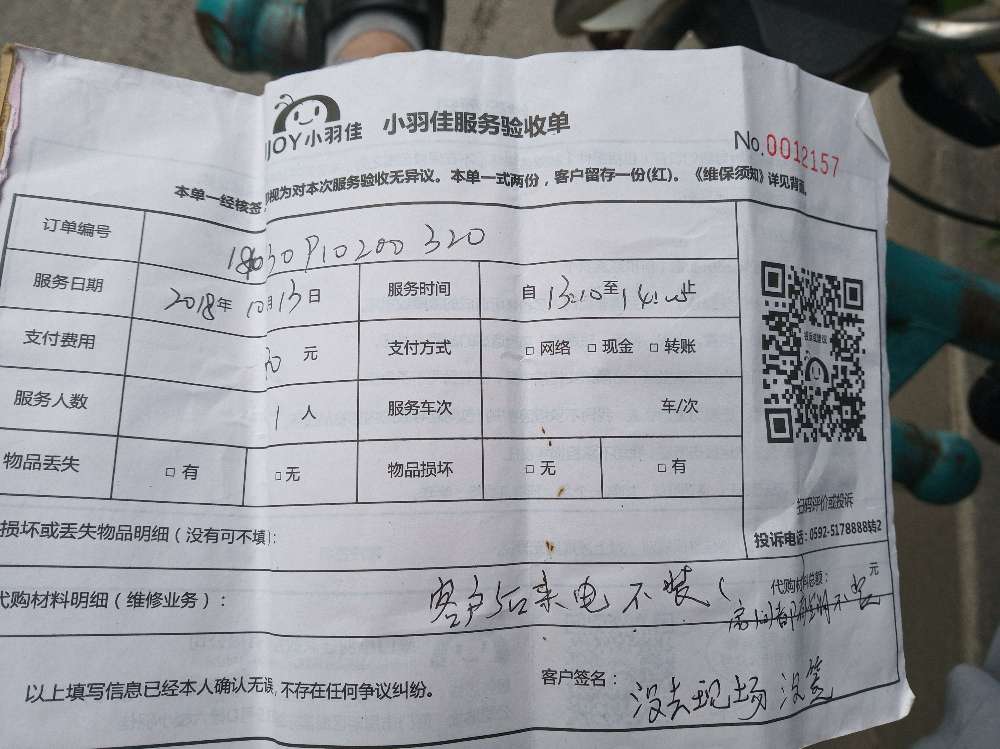 JOY小羽佳 小羽佳服务验收单
No.0012157
本单一经核签 视为对本次服务验收无异议。本单一式两份，客户留存一份(红)。《维保须知》详见背面
订单编号
服务日期 2018年10月13日 服务时间 自13:10至14:00止
支付费用 30元 支付方式 □网络 □现金 □转账
服务人数 1人 服务车次 车/次
物品丢失 □有 □无 物品损坏 □无 □有
扫码评价或投诉
投诉电话：0592-5178888转2
损坏或丢失物品明细（没有可不填）：
代购材料明细（维修业务）： 客户后来电不装 代购材料总额： 元
以上填写信息已经本人确认无误，不存在任何争议纠纷。 客户签名： 没去现场 没签